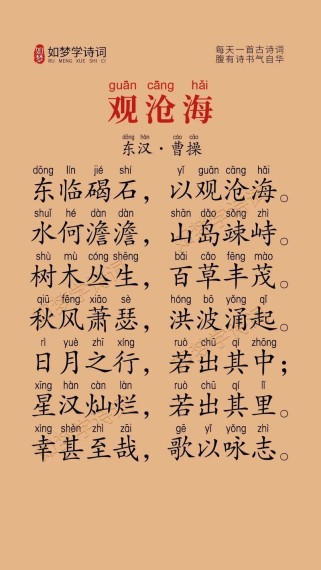 如梦学诗词
RU MENG XUE SHI CI
每天一首古诗词
腹有诗书气自华
guān cāng hǎi
观沧海
dōng hàn cáo cāo
东汉·曹操
dōng lín jié shí yǐ guān cāng hǎi
东临碣石，以观沧海。
shuǐ hé dàn dàn shān dǎo sǒng zhì
水何澹澹，山岛竦峙。
shù mù cóng shēng bǎi cǎo fēng mào
树木丛生，百草丰茂。
qiū fēng xiāo sè hóng bō yǒng qǐ
秋风萧瑟，洪波涌起。
rì yuè zhī xíng ruò chū qí zhōng
日月之行，若出其中；
xīng hàn càn làn ruò chū qí lǐ
星汉灿烂，若出其里。
xìng shèn zhì zāi gē yǐ yǒng zhì
幸甚至哉，歌以咏志。